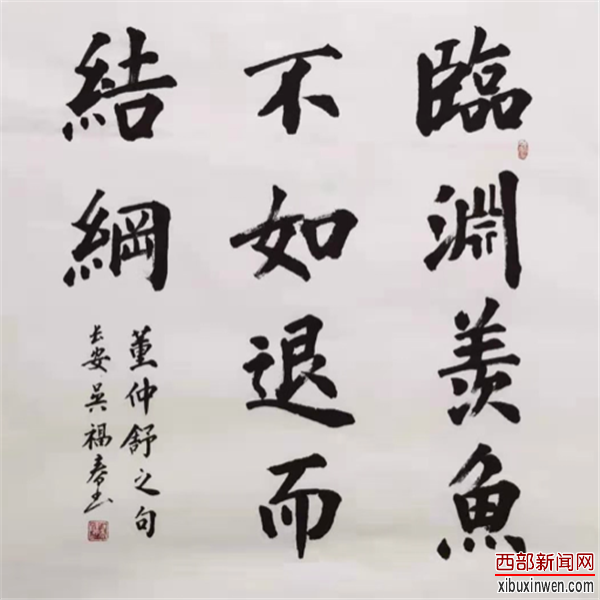 臨淵羨魚
不如退而
結綱
董仲舒之句
长安吴福春书
西部新闻网
xibuxinwen.com